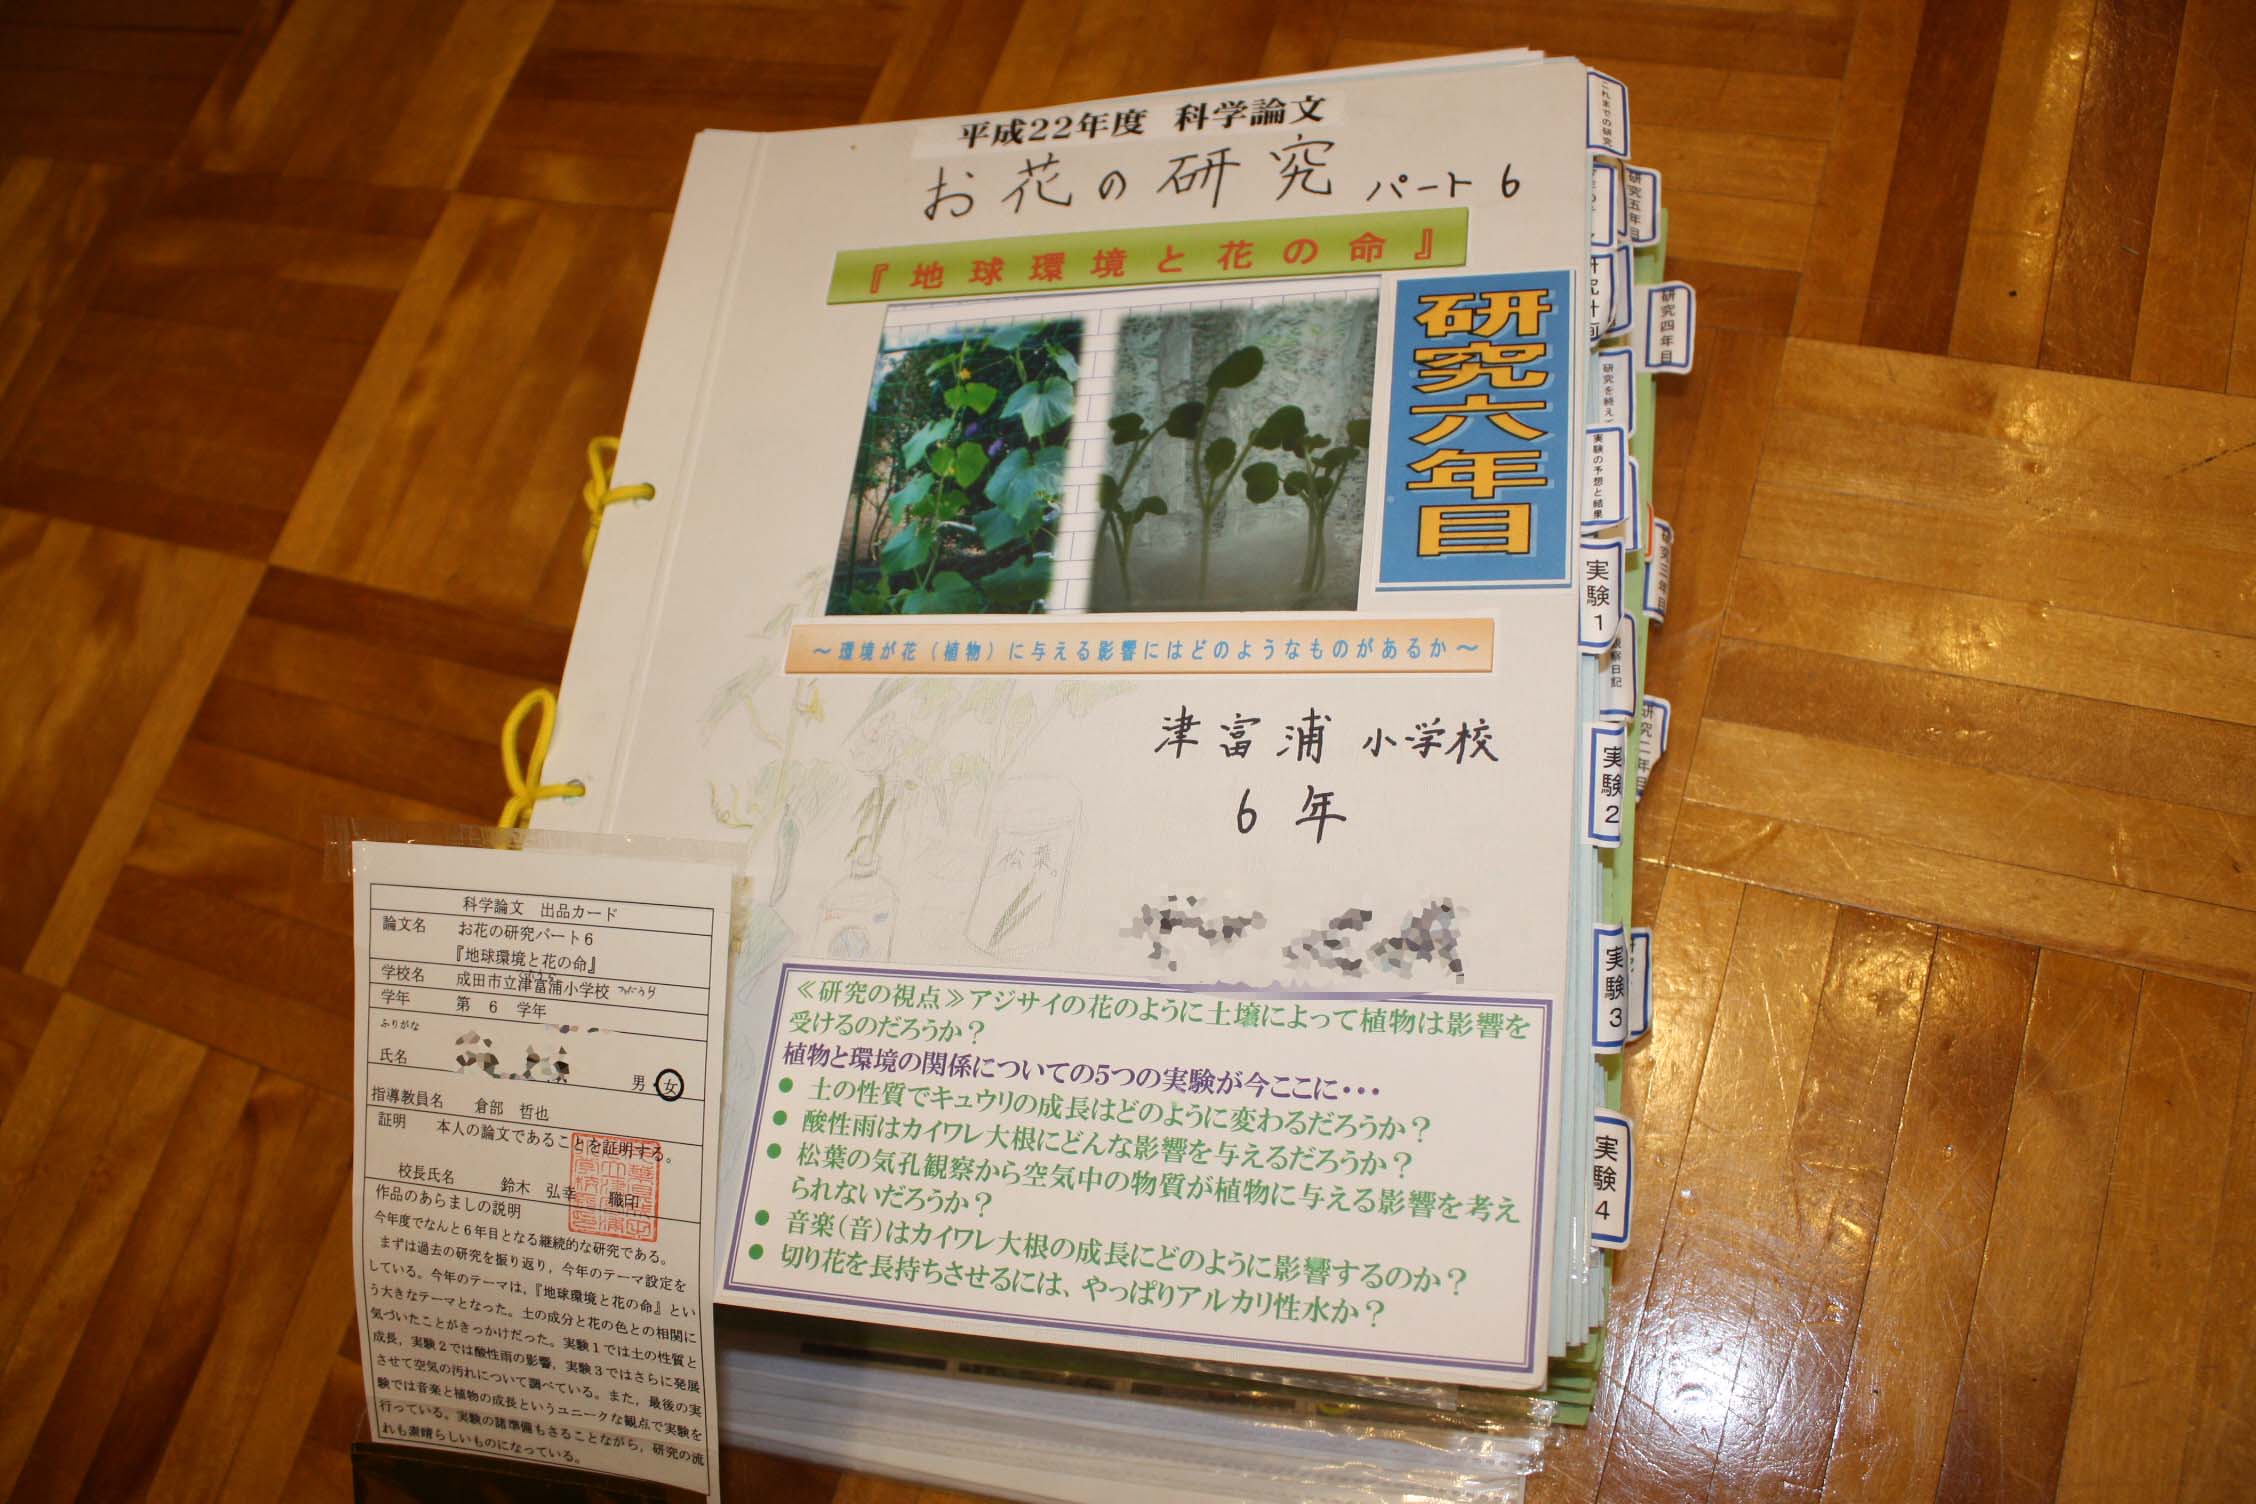 平成22年度 科学論文
お花の研究 パート6
『地球環境と花の命』
研究六年目
～環境が花（植物）に与える影響にはどのようなものがあるか～
津富浦 小学校
6年
松葉
≪研究の視点≫アジサイの花のように土壌によって植物は影響を
受けるのだろうか？
植物と環境の関係についての5つの実験が今ここに・・・
● 土の性質でキュウリの成長はどのように変わるだろうか？
● 酸性雨はカイワレ大根にどんな影響を与えるだろうか？
● 松葉の気孔観察から空気中の物質が植物に与える影響を考え
られないだろうか？
● 音楽（音）はカイワレ大根の成長にどのように影響するのか？
● 切り花を長持ちさせるには、やっぱりアルカリ性水か？
これまでの研究
研究五年目
研究計画
研究四年目
研究を終えて
実験の予想と結果
研究三年目
実験1
観察日記
研究二年目
実験2
実験3
実験4
科学論文 出品カード
論文名 お花の研究パート6
『地球環境と花の命』
学校名 成田市立津富浦小学校
学年 第 6 学年
ふりがな
氏名 男・女
指導教員名 倉部 哲也
証明 本人の論文であることを証明する。
校長氏名 鈴木 弘幸 職印
作品のあらましの説明
今年度でなんと6年目となる継続的な研究である。
まずは過去の研究を振り返り，今年のテーマ設定を
している。今年のテーマは，『地球環境と花の命』とい
う大きなテーマとなった。土の成分と花の色との相関に
気づいたことがきっかけだった。実験1では土の性質と
成長，実験2では酸性雨の影響，実験3ではさらに発展
させて空気の汚れについて調べている。また，最後の実
験では音楽と植物の成長というユニークな観点で実験を
行っている。実験の諸準備もさることながら，研究の流
れも素晴らしいものになっている。